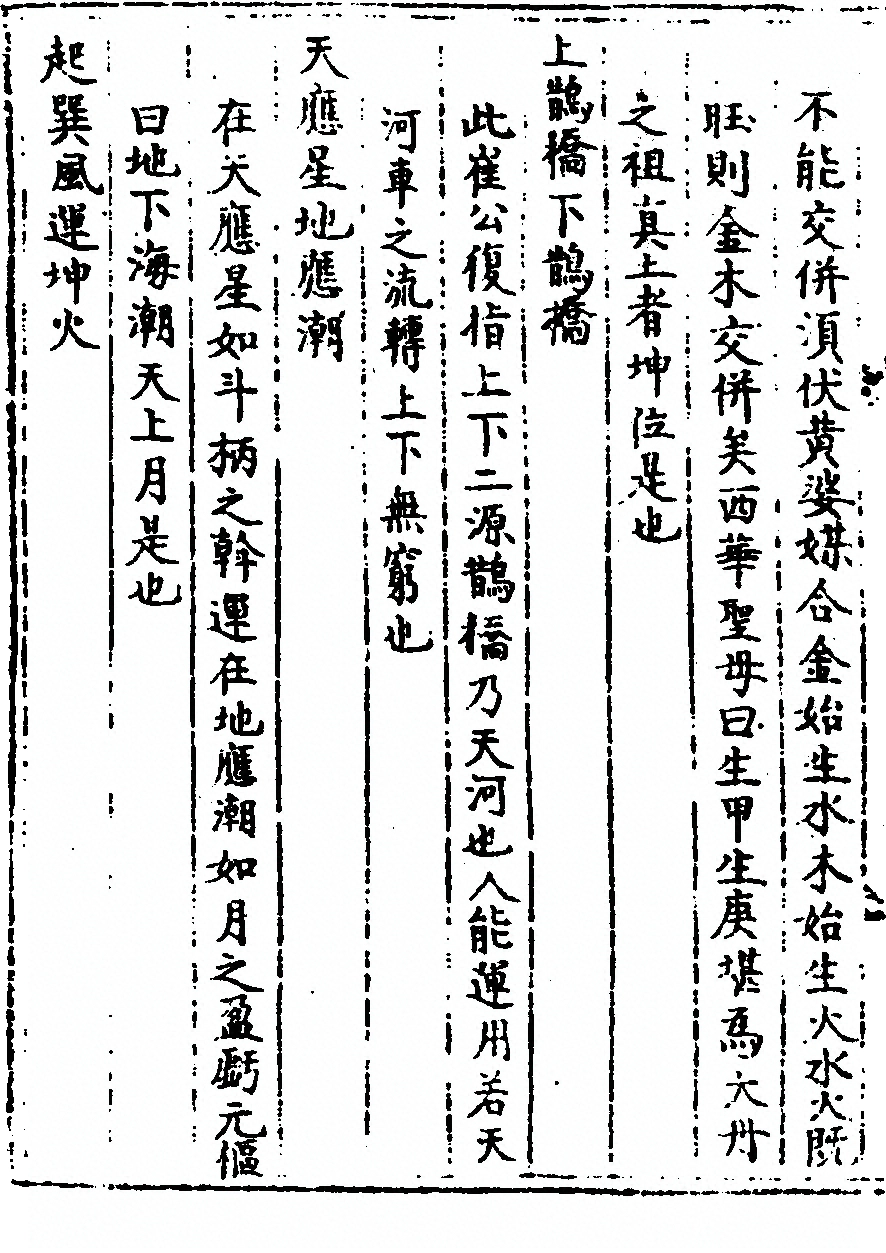 不能交併須伏黃婆媒合金始生水木始生火水火旣
旺則金木交併矣西華聖母曰生甲生庚堪為大丹
之祖真土者坤位是也
上鵲橋下鵲橋
此崔公復指上下二源鵲橋乃天河也人能運用若天
河車之流轉上下無窮也
天應星地應潮
在天應星如斗柄之斡運在地應潮如月之盈虧元樞
曰地下海潮天上月是也
起巽風運坤火